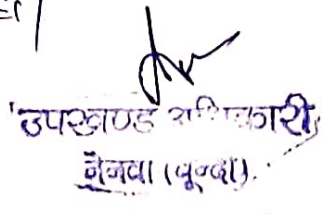 उपखण्ड अधिकारी
नैनवा (बून्दी)